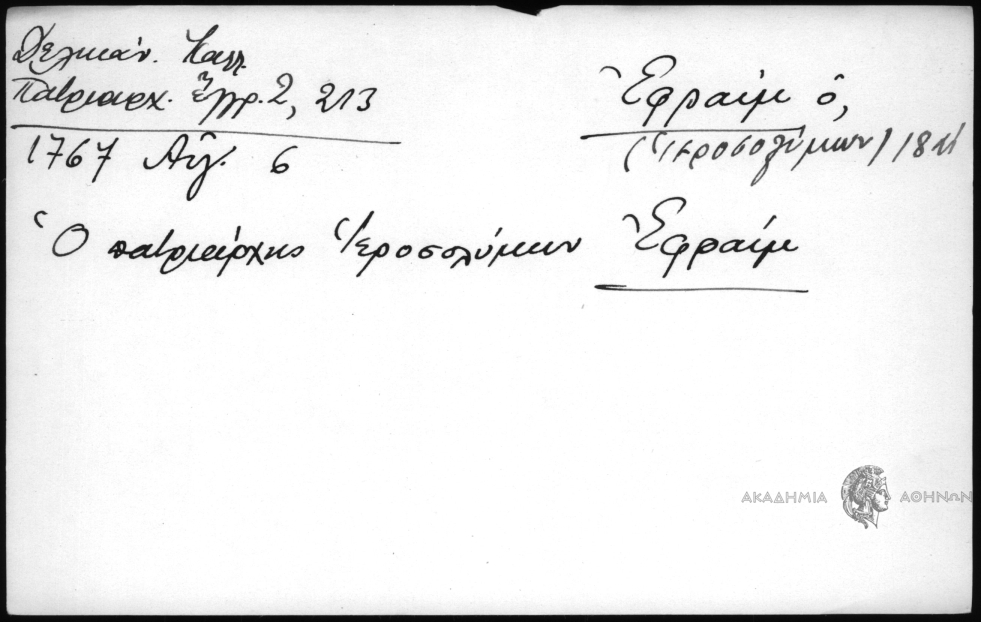 Δελικάν. Καλλ.
Πατριαρχ. ἔγγρ. 2, 213
1767 Αὔγ. 6
Ἐφραὶμ ὁ,
(Ἱεροσολύμων)
Ὁ πατριάρχης Ἱεροσολύμων Ἐφραίμ
ΑΚΑΔΗΜΙΑ ΑΘΗΝΩΝ